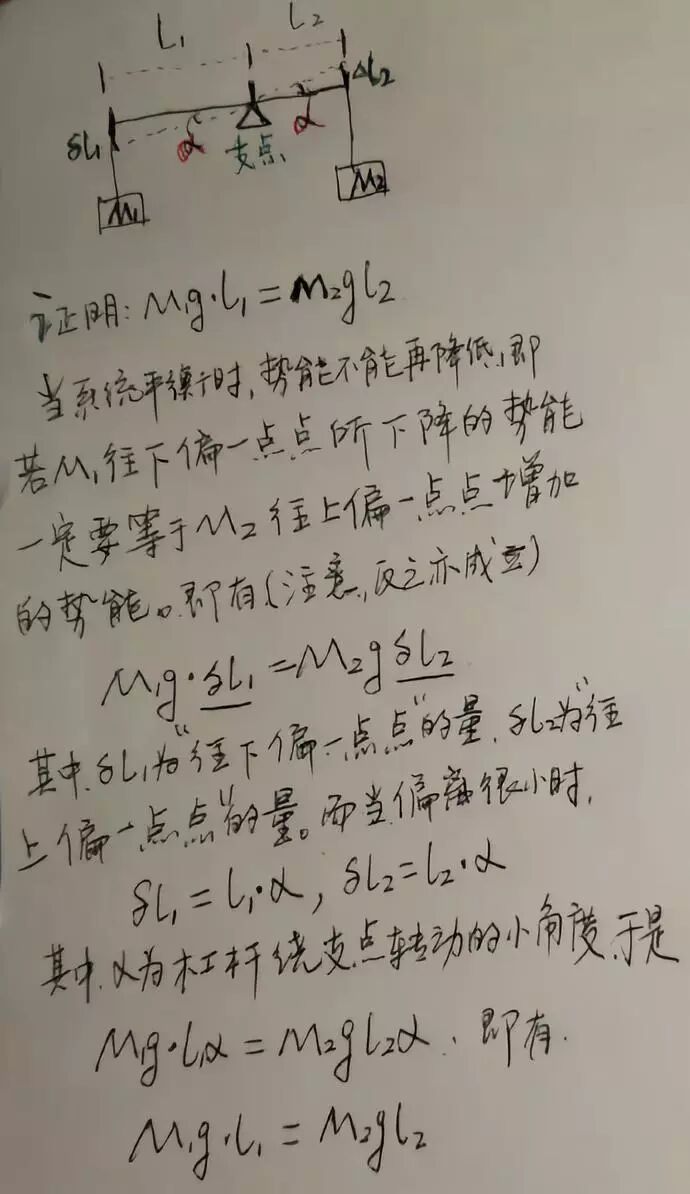 L₁ L₂
δL₁ α 支点 α ΔL₂
M₁ M₂
证明: M₁g·L₁ = M₂gL₂
当系统平衡时, 势能不能再降低, 即
若M₁往下偏一点点所下降的势能
一定要等于M₂往上偏一点点增加
的势能。即有(注意, 反之亦成立)
M₁g·δL₁ = M₂gδL₂
其中, δL₁为“往下偏一点点”的量, δL₂为“往
上偏一点点”的量。而当偏离很小时,
δL₁ = L₁·α, δL₂ = L₂·α
其中, α为杠杆绕支点转动的小角度, 于是
M₁g·L₁α = M₂gL₂α, 即有.
M₁g·L₁ = M₂gL₂